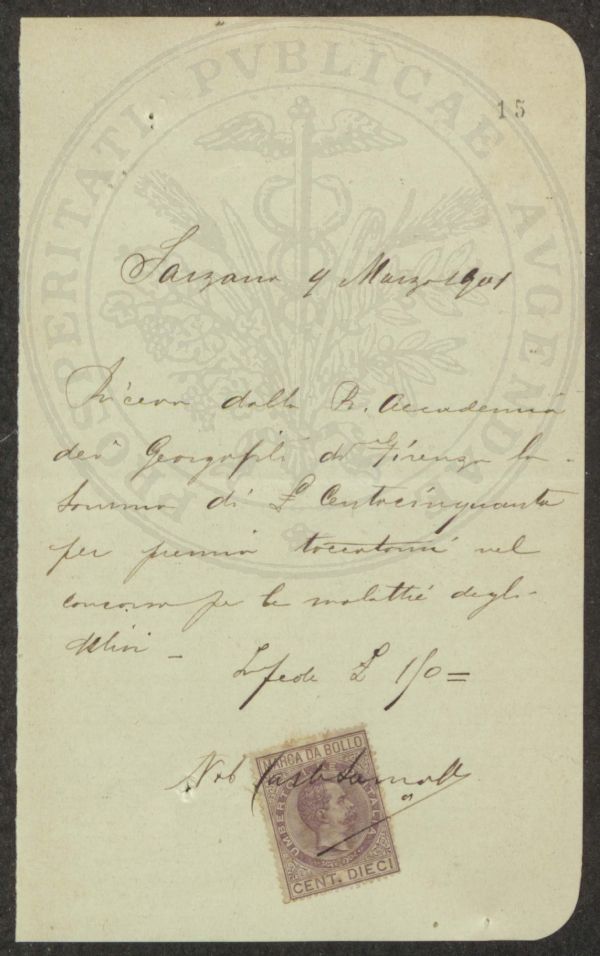 PROSPERITATI PVBLICAE AVGENDAE
15
Sarzana 9 Marzo 1901
Ricevo dalla R. Accademia
dei Georgofili di Firenze la
somma di £ Centocinquanta
per premio toccatomi nel
concorso per le malattie degli
Ulivi -
In fede £ 150=
Nob
MARCA DA BOLLO
UMBERTO ITALIA
CENT. DIECI